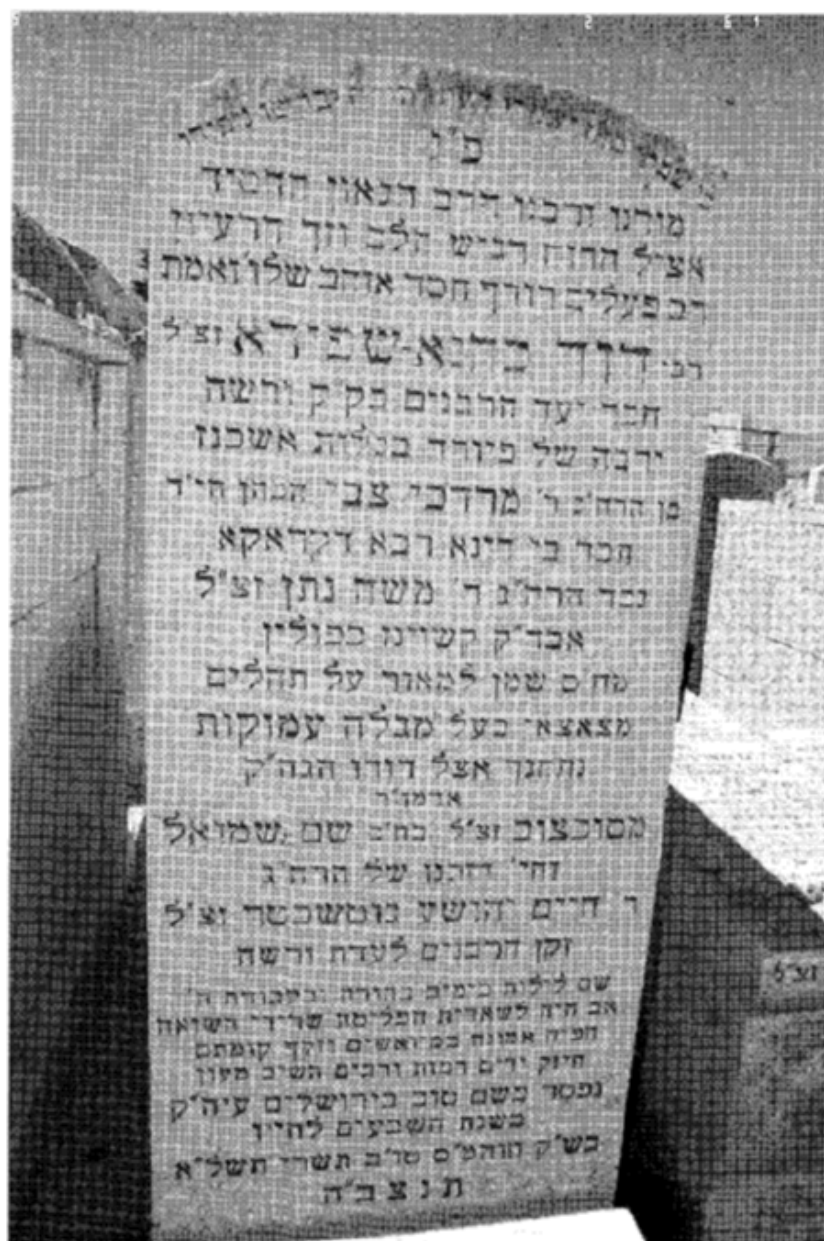 פ"נ
מורנו ורבנו הרב הגאון החסיד
אציל הרוח רגיש הלב וזך הרעיון
רב פעלים רודף חסד אוהב שלו' ואמת
רבי דוד כהנא-שפירא זצ"ל
חבר ועד הרבנים בק"ק ורשה
ורבה של פיורד בגלות אשכנז
בן הרה"ג ר' מרדכי צבי הכהן הי"ד
חבר בי דינא רבא דקראקא
נכד הרה"ג ר' משה נתן זצ"ל
אבד"ק קשיינו בפולין
מח"ס שמן למאור על תהלים
מצאצאי בעל מגלה עמוקות
נתחנך אצל דודו הגה"ק
אדמו"ר
מסוכצוב זצ"ל בח"ס שם משמואל
וחי' דזכנו של הרה"ג
ר' חיים יהושע גוטשכטר זצ"ל
זקן הרבנים לעדת ורשה
שם לילות כימים בתורה ובעבודת ה'
אב היה לשארית הפליטה שרידי השואה
הפיח אמונה במיואשים וזקף קומתם
חיזק ידים רפות ורבים השיב מעון
נפטר בשם טוב בירושלים עיה"ק
בשנת השבעים לחייו
בש"ק חוהמ"ס טו"ב תשרי תשל"א
תנצב"ה
זצ"ל